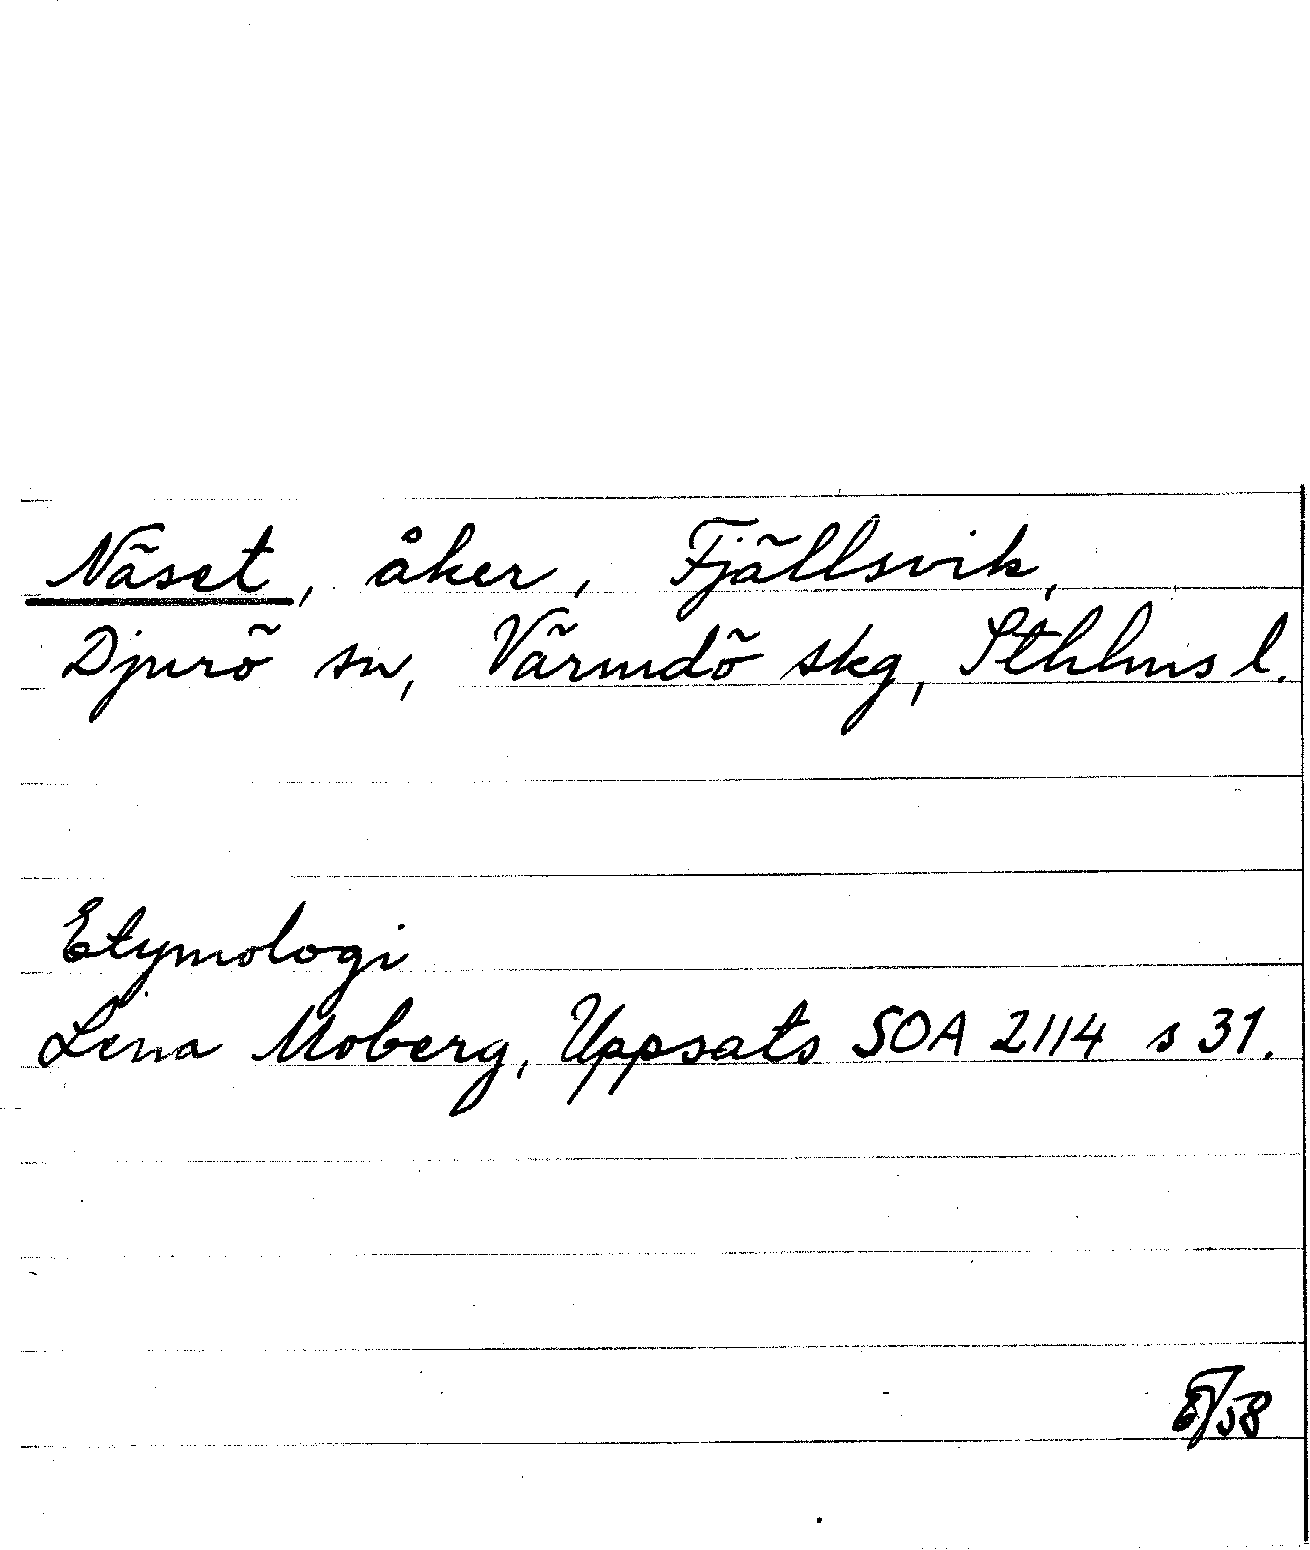 Näset, åker, Fjällsvik,
Djurö sn, Värmdö skg, Sthlms l.
Etymologi
Lena Moberg, Uppsats SOA 2114 s 31.